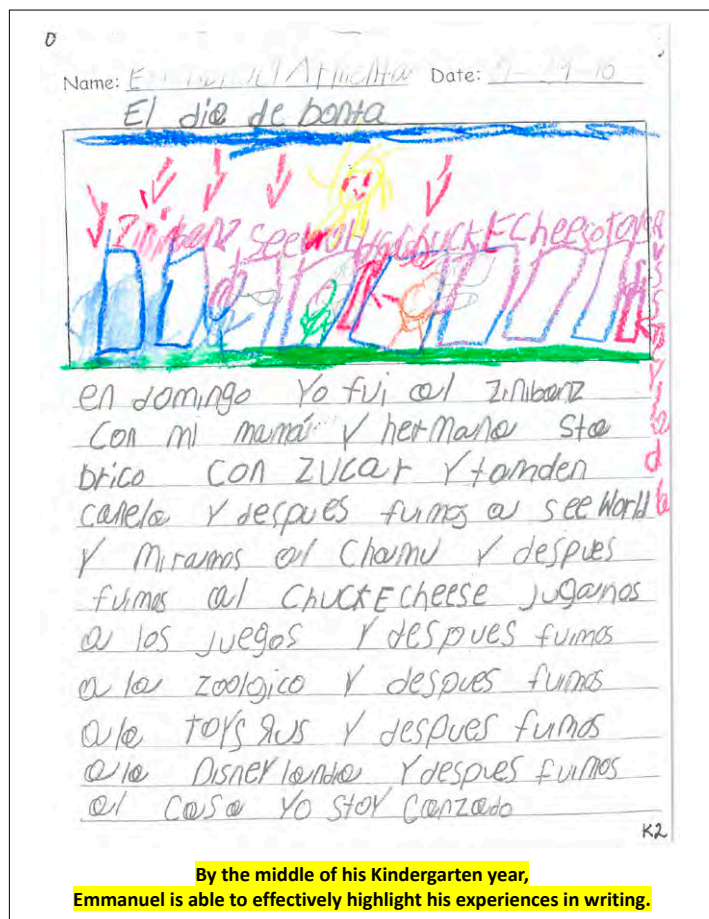 Name: Emmanuel Armenta Date: 9-29-10
El dia de bonta
Zinibonz SeeWorld ChuckECheese Toys
en domingo Yo fui al Zinibonz
Con mi mamá Y hermano Sta
brico con ZUCar Y tamden
canela Y despues fuimos a see World
Y Miramos al Chamu Y despues
fuimos al ChuckECheese Jugamos
a los Juegos Y despues fuimos
a la zoologico Y despues fuimos
a la TOYS Rus Y despues fuimos
a la DISneYlandia Y despues fuimos
al casa Yo stoy canzado
K2
By the middle of his Kindergarten year,
Emmanuel is able to effectively highlight his experiences in writing.